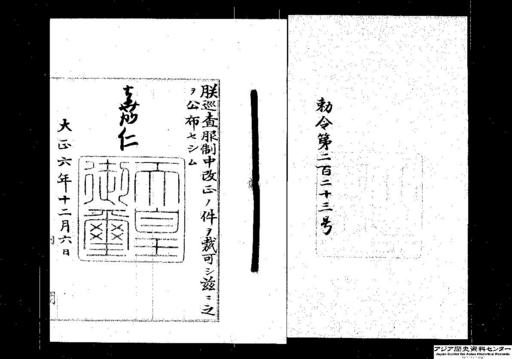 勅令第二百二十三号
朕巡査服制中改正ノ件ヲ裁可シ茲ニ之
ヲ公布セシム
嘉仁
天皇
御璽
大正六年十二月六日
アジア歴史資料センター
Japan Center for Asian Historical Records